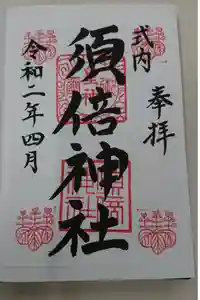 式内
奉拝
須倍神社
令和二年四月